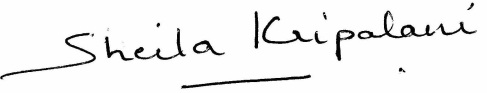 Sheila Kripalani